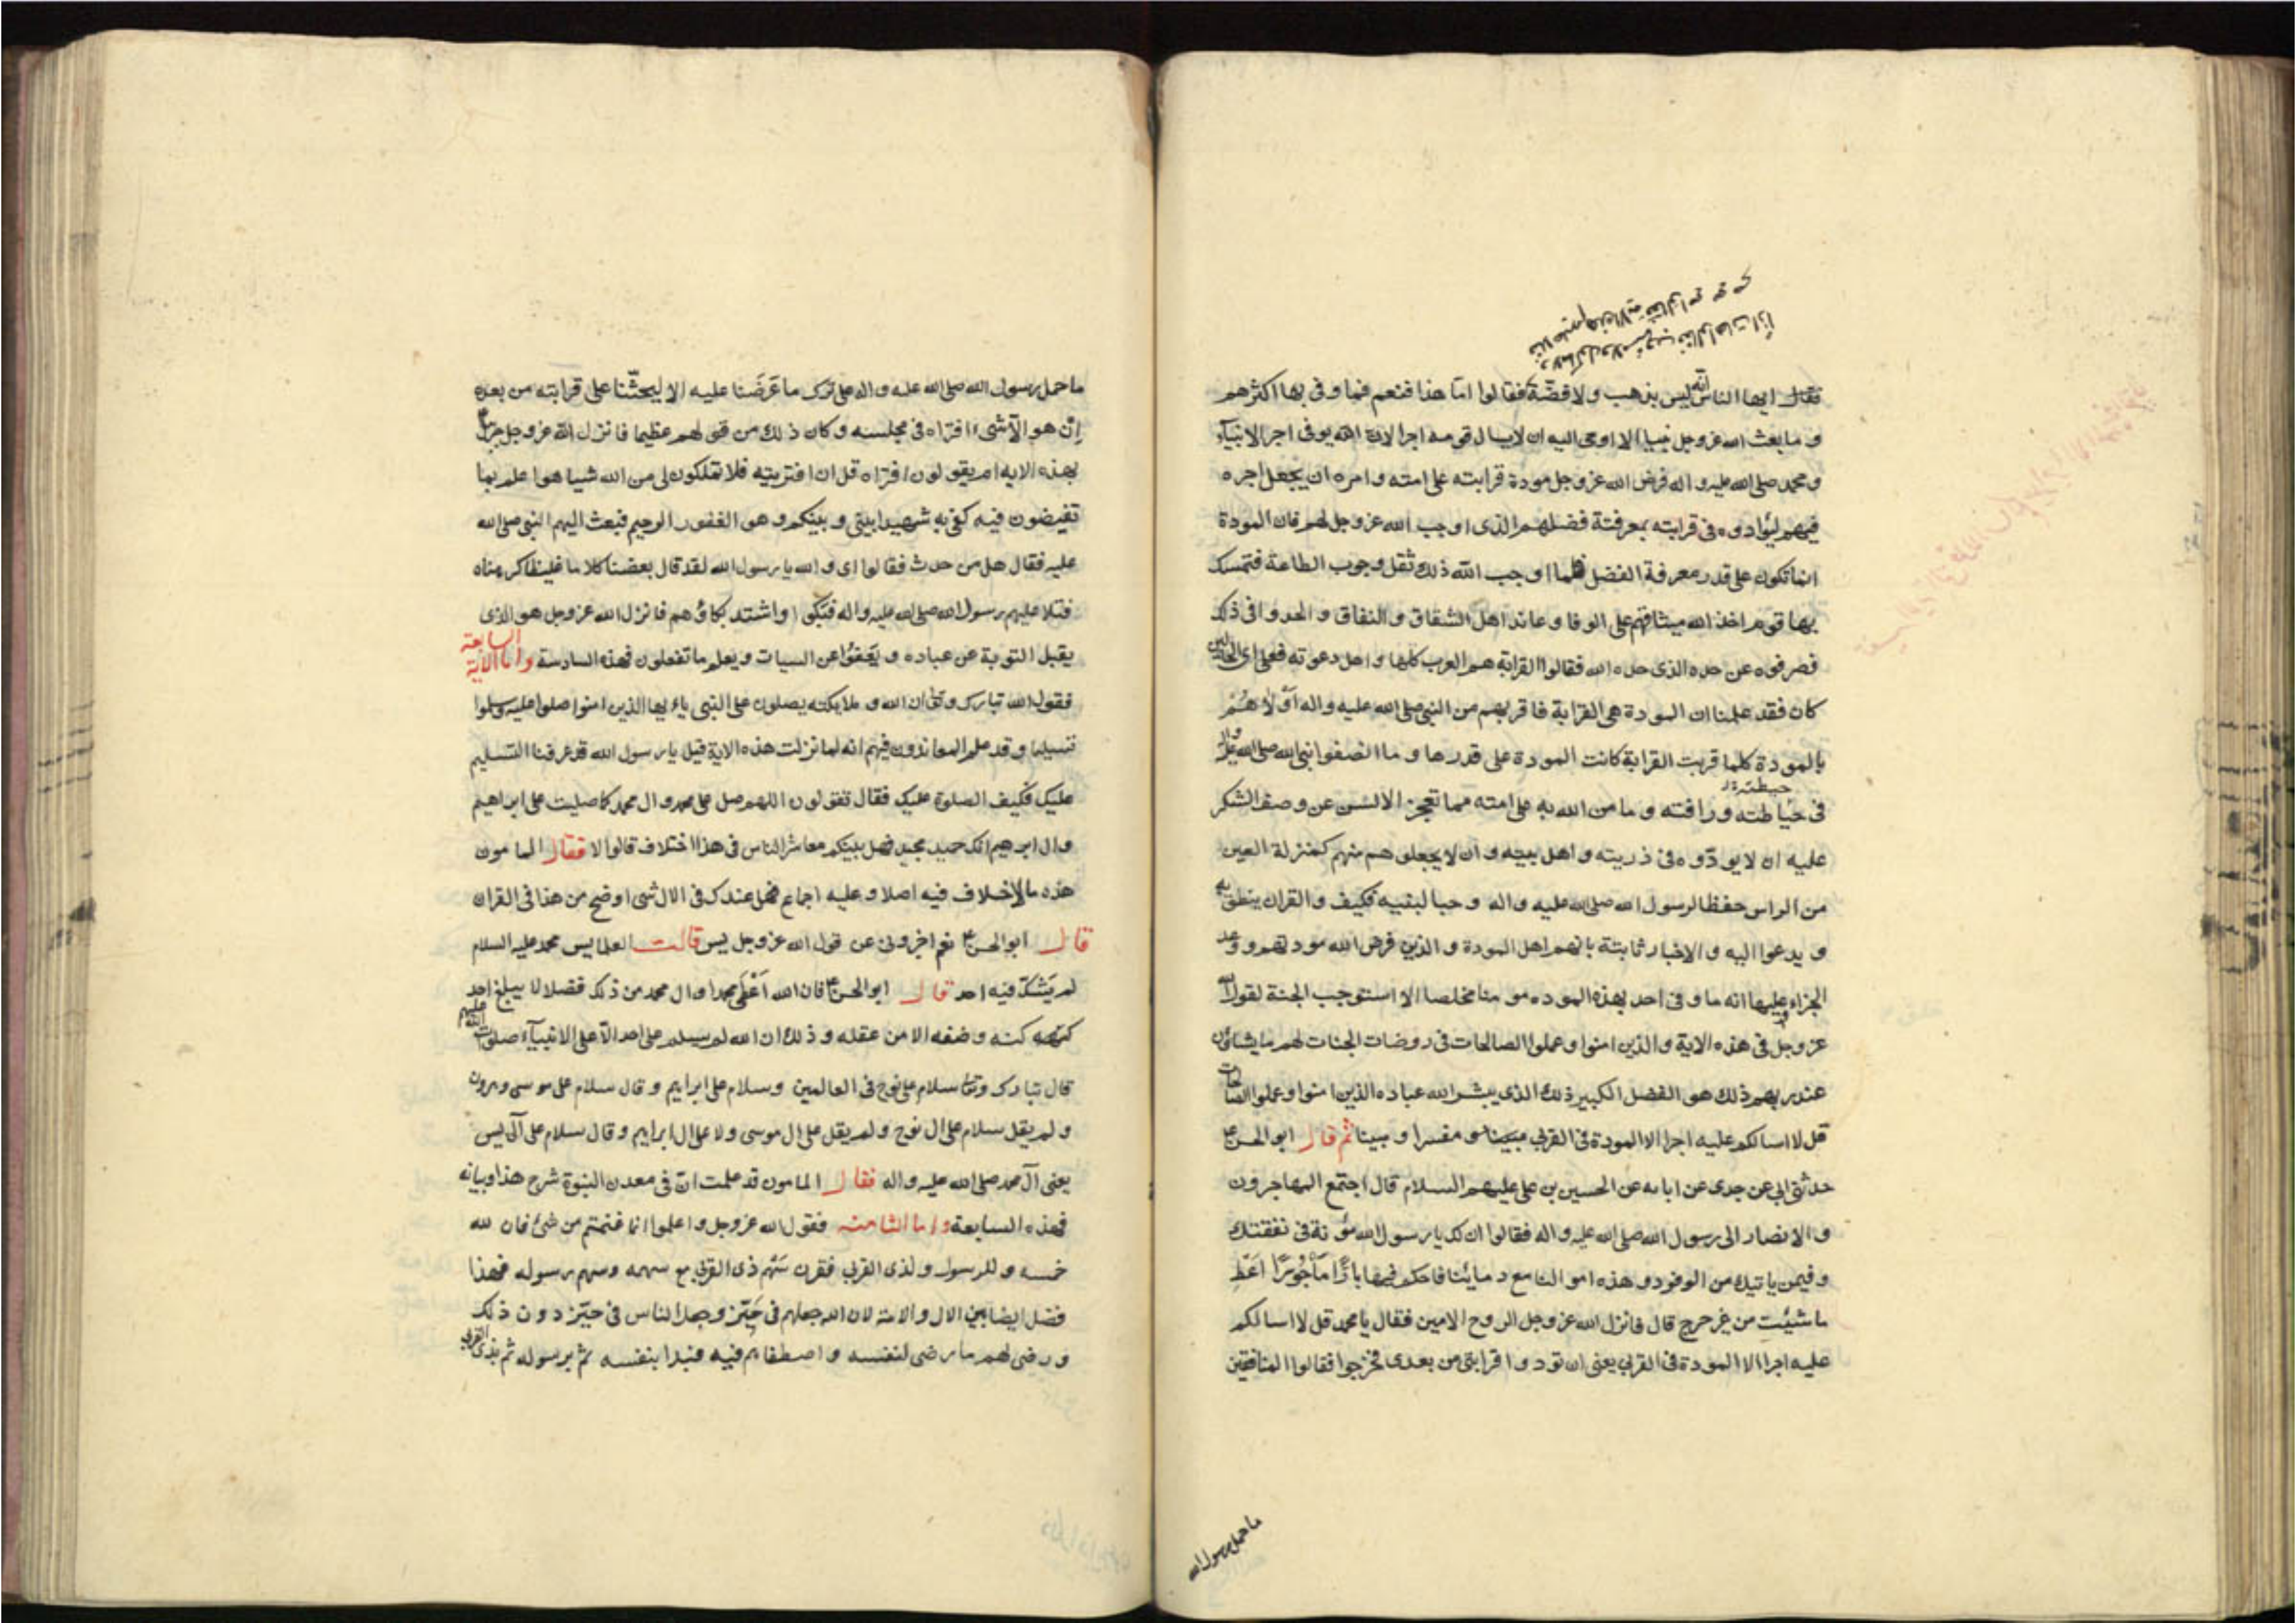 فقال ايها الناس انه ليس بذهب ولا فضة فقالوا اما هذا فنعم فما وفى بها اكثرهم
و ما بعث الله عز وجل نبيا الا اوحى اليه ان لا يسال قومه اجرا لان الله يوفى اجر الانبياء
و محمد صلى الله عليه و اله فرض الله عز وجل مودة قرابته على امته و امره ان يجعل اجره
فيهم ليوادوه فى قرابته بمعرفتة فضلهم الذى اوجب الله عز وجل لهم فان المودة
انما تكون على قدر معرفة الفضل فلما اوجب الله ذلك ثقل وجوب الطاعة فتمسك
بها قوم اخذ الله ميثاقهم على الوفا و عاند اهل الشقاق و النفاق و الحدوا فى ذلك
فصرفوه عن حده الذى حده الله فقالوا القرابة هم العرب كلها و اهل دعوته فعلى اى الحالتين
كان فقد علمنا ان المودة هى القرابة فاقربهم من النبى صلى الله عليه و اله اولاهم
بالمودة كلما قربت القرابة كانت المودة على قدرها و ما انصفوا نبى الله صلى الله عليه واله
فى حياطته و رافته و ما من الله به على امته مما تعجز الالسن عن وصف الشكر
عليه ان لا يودوه فى ذريته و اهل بيته و ان لا يجعلوهم منهم كمنزلة العين
من الراس حفظا لرسول الله صلى الله عليه و اله و حبا لبنيه فكيف و القران ينطق به
و يدعوا اليه و الاخبار ثابتة بانهم اهل المودة و الذين فرض الله مودتهم و وعد
الجزاء عليها انه ما وفى احد بهذه الموده مومنا مخلصا الا استوجب الجنة لقول الله
عز وجل فى هذه الاية و الذين امنوا و عملوا الصالحات فى روضات الجنات لهم ما يشاؤن
عند ربهم ذلك هو الفضل الكبير ذلك الذى يبشر الله عباده الذين امنوا و عملوا الصالحات
قل لا اسالكم عليه اجرا الا المودة فى القربى مفسرا و مبينا ثم قال ابو الحسن ع
حدثنى ابى عن جدى عن ابائه عن الحسين بن على عليهم السلام قال اجتمع المهاجرون
و الانصار الى رسول الله صلى الله عليه و اله فقالوا ان لك يا رسول الله مؤنة فى نفقتك
و فيمن ياتيك من الوفود و هذه اموالنا مع دمائنا فاحكم فيها بارا ماجورا اعط
ما شئت من غير حرج قال فانزل الله عز وجل الروح الامين فقال يا محمد قل لا اسالكم
عليه اجرا الا المودة فى القربى يعنى ان تودوا قرابتى من بعدى فخرجوا فقالوا المنافقين
ما حمل رسول الله
ما حمل رسول الله صلى الله عليه و اله على ترك ما عرضنا عليه الا ليحثنا على قرابته من بعده
ان هو الا شىء افتراه فى مجلسه و كان ذلك من قولهم عظيما فانزل الله عز وجل جبرئيل
بهذه الايه ام يقولون افتراه قل ان افتريته فلا تملكون لى من الله شيئا هو اعلم بما
تفيضون فيه كفى به شهيدا بينى و بينكم و هو الغفور الرحيم فبعث اليهم النبى صلى الله
عليه فقال هل من حدث فقالوا اى و الله يا رسول الله لقد قال بعضنا كلاما غليظا كرهناه
فتلا عليهم رسول الله صلى الله عليه و اله فبكوا و اشتد بكاؤهم فانزل الله عز وجل هو الذى
يقبل التوبة عن عباده و يعفوا عن السيات و يعلم ما تفعلون فهذه السادسة و اما الاية السابعة
فقول الله تبارك وتعالى ان الله و ملايكته يصلون على النبى ياء يها الذين امنوا صلوا عليه و سلموا
تسليما و قد علم المعاندون فيهم انه لما نزلت هذه الاية قيل يا رسول الله قد عرفنا التسليم
عليك فكيف الصلوة عليك فقال تقولون اللهم صل على محمد و ال محمد كما صليت على ابراهيم
و ال ابرهيم انك حميد مجيد فهل بينكم معاشر الناس فى هذا اختلاف قالوا لا فقال المامون
هذه ما لا خلاف فيه اصلا و عليه اجماع فهل عندك فى الال شى اوضح من هذا فى القران
قال ابو الحسن ع نعم اخبرونى عن قول الله عز وجل يس قالت العلما يس محمد عليه السلام
لم يشك فيه احد قال ابو الحسن ع فان الله اعطى محمدا و ال محمد من ذلك فضلا لا يبلغ احد
كنه وصفه الا من عقله و ذلك ان الله لم يسلم على احد الا على الانبياء صلوات الله عليهم
قال تبارك وتعالى سلام على نوح فى العالمين و سلام على ابراهيم و قال سلام على موسى و هرون
و لم يقل سلام على ال نوح و لم يقل على ال موسى ولا على ال ابراهيم و قال سلام على آل يس
يعنى آل محمد صلى الله عليه و اله فقال المامون قد علمت ان فى معدن النبوة شرح هذا و بيانه
فهذه السابعة و اما الثامنه فقول الله عز وجل و اعلموا انما غنمتم من شىء فان لله
خمسه و للرسول و لذى القربى فقرن سهم ذى القربى مع سهمه و سهم رسوله فهذا
فضل ايضا بين الال و الامة لان الله جعلهم فى حيز و جعل الناس فى حيز دون ذلك
و رضى لهم ما رضى لنفسه و اصطفاهم فيه فبدا بنفسه ثم برسوله ثم بذى القربى